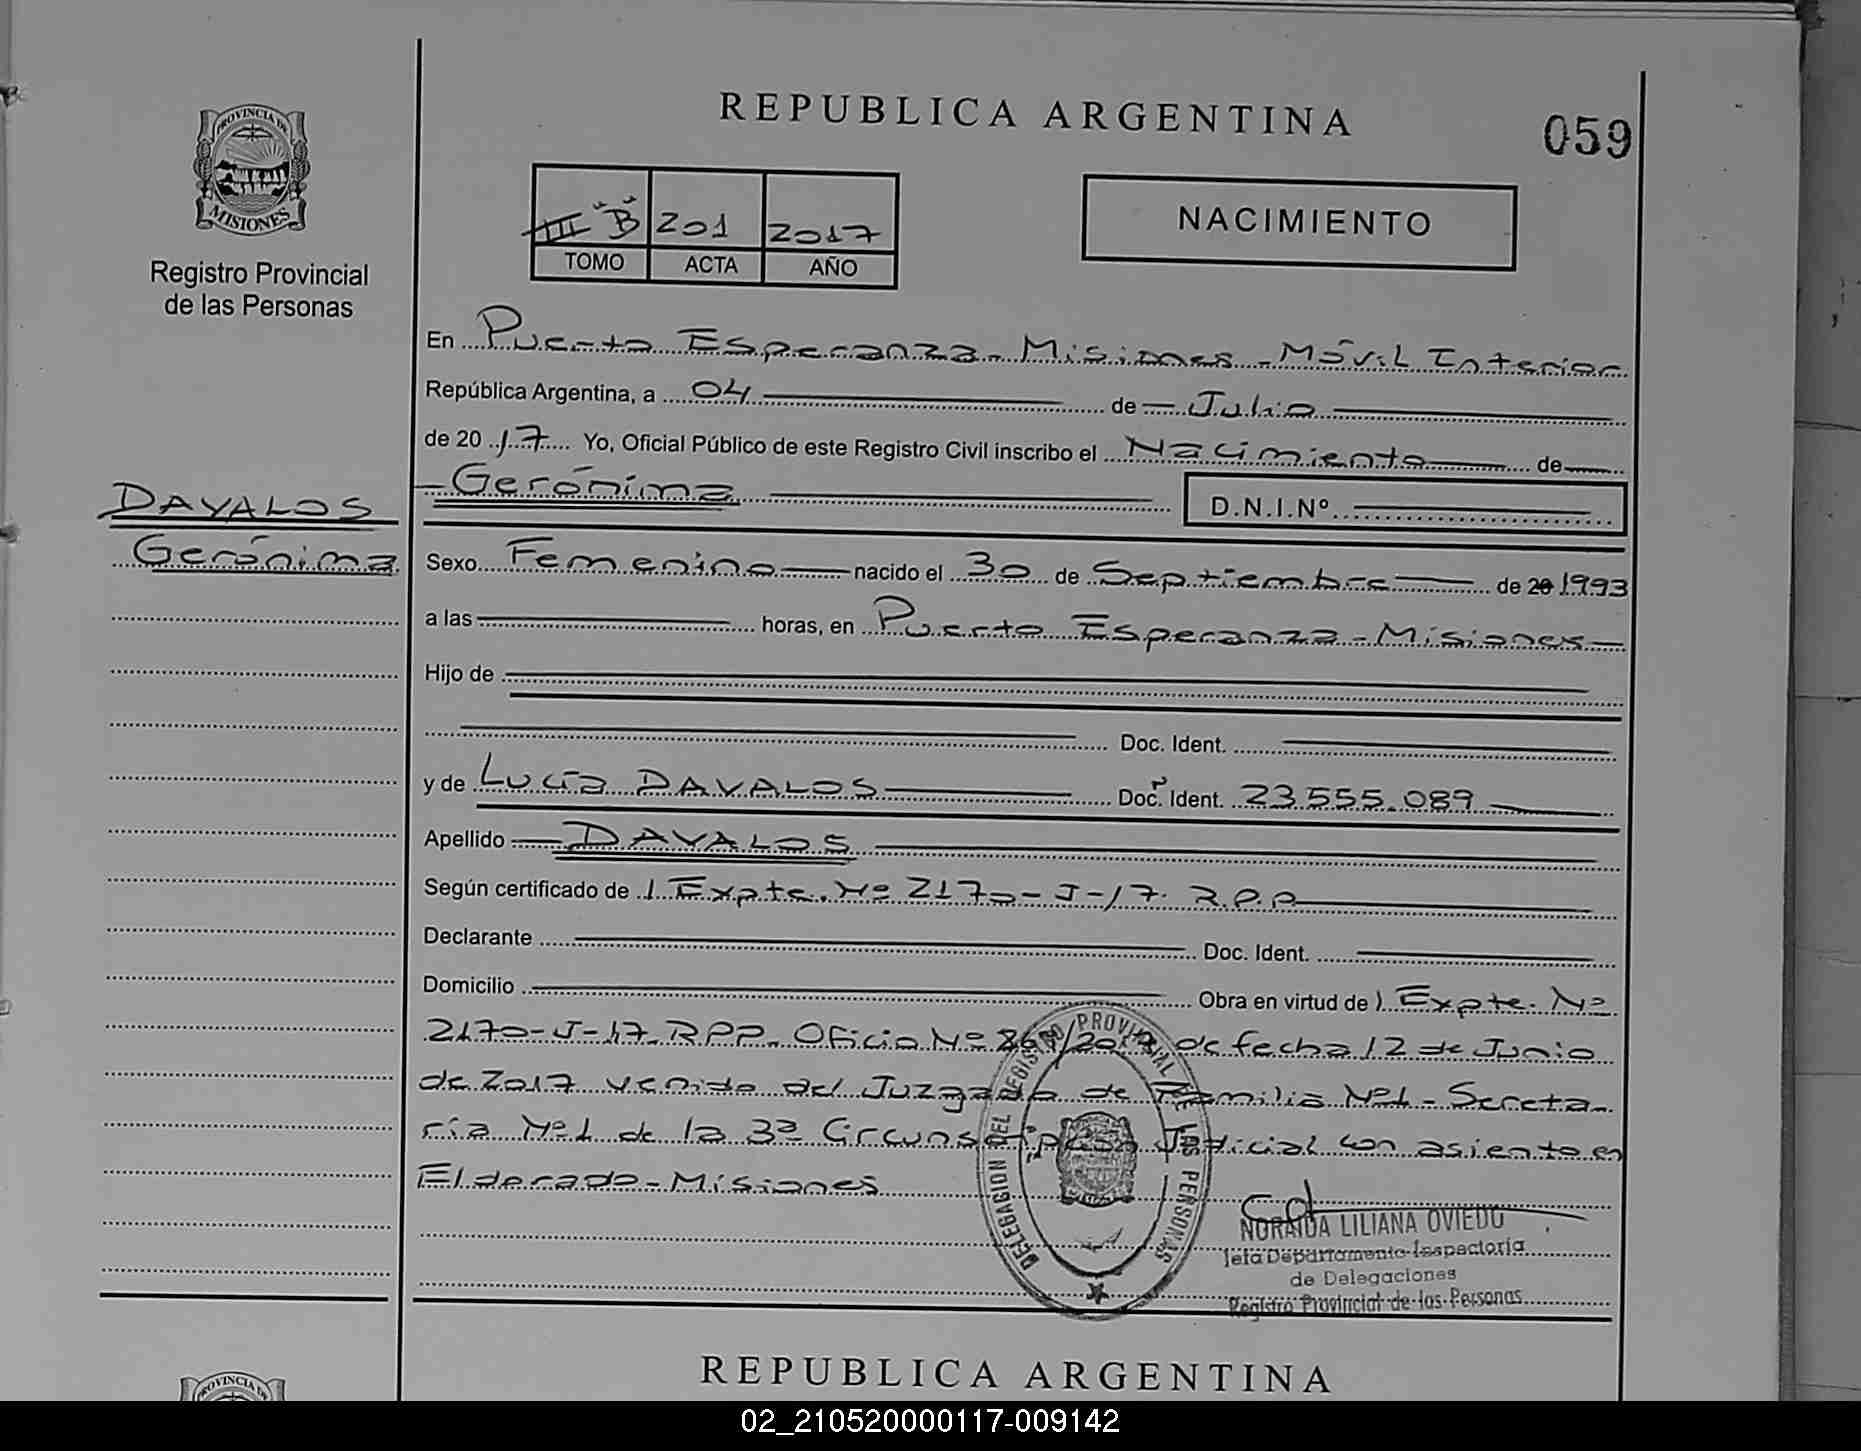 REPUBLICA ARGENTINA
059
PROVINCIA DE
MISIONES
Registro Provincial
de las Personas
III "B" 201 2017
TOMO ACTA AÑO
NACIMIENTO
En Puerto Esperanza - Misiones - Móvil Interior
República Argentina, a 04 de Julio
de 2017 Yo, Oficial Público de este Registro Civil inscribo el Nacimiento de
DAVALOS
Gerónima
Gerónima D.N.I.Nº
Sexo Femenino nacido el 30 de Septiembre de 20 1993
a las horas, en Puerto Esperanza - Misiones
Hijo de
Doc. Ident.
y de Lucía DAVALOS Doc. Ident. 23.555.089
Apellido DAVALOS
Según certificado de Expte. Nº 2170-J-17. R.P.P
Declarante Doc. Ident.
Domicilio Obra en virtud de Expte. Nº
2170-J-17. RPP. Oficio Nº de fecha 12 de Junio
de 2017 venido del Juzgado de Familia Nº1 - Secreta-
ría Nº1 de la 3ª Circunscripción Judicial con asiento en
Eldorado - Misiones
DELEGACION DEL REGISTRO PROVINCIAL DE LAS PERSONAS
NORAIDA LILIANA OVIEDO
Jefa Departamento Inspectoría
de Delegaciones
Registro Provincial de las Personas
REPUBLICA ARGENTINA
PROVINCIA DE
02_210520000117-009142